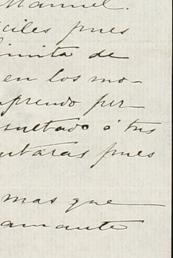 Manuel.
ciles pues
imita de
en los mo-
prendo per
sultado ó tus
utaras pues
mas que
amante